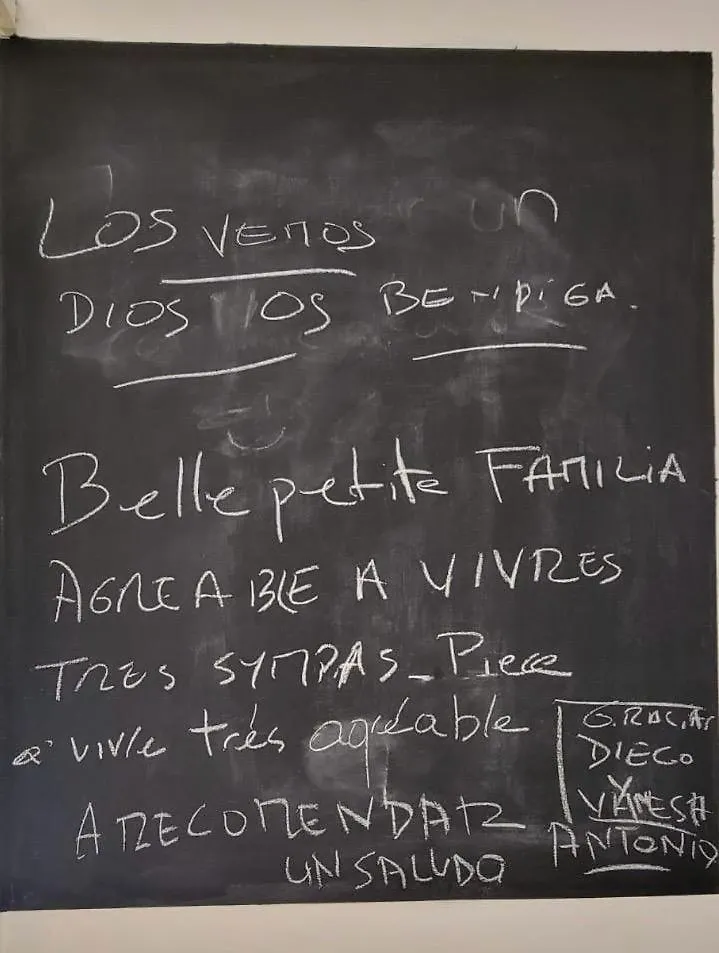 un
LOS VEMOS
DIOS LOS BENDIGA.
Belle petite FAMILIA
AGREABLE A VIVRES
TRES SYMPAS_ Piece
a' vivre très agréable
A RECOMENDAR
UN SALUDO
GRACIAS
DIEGO
Y
VANESA
ANTONIO